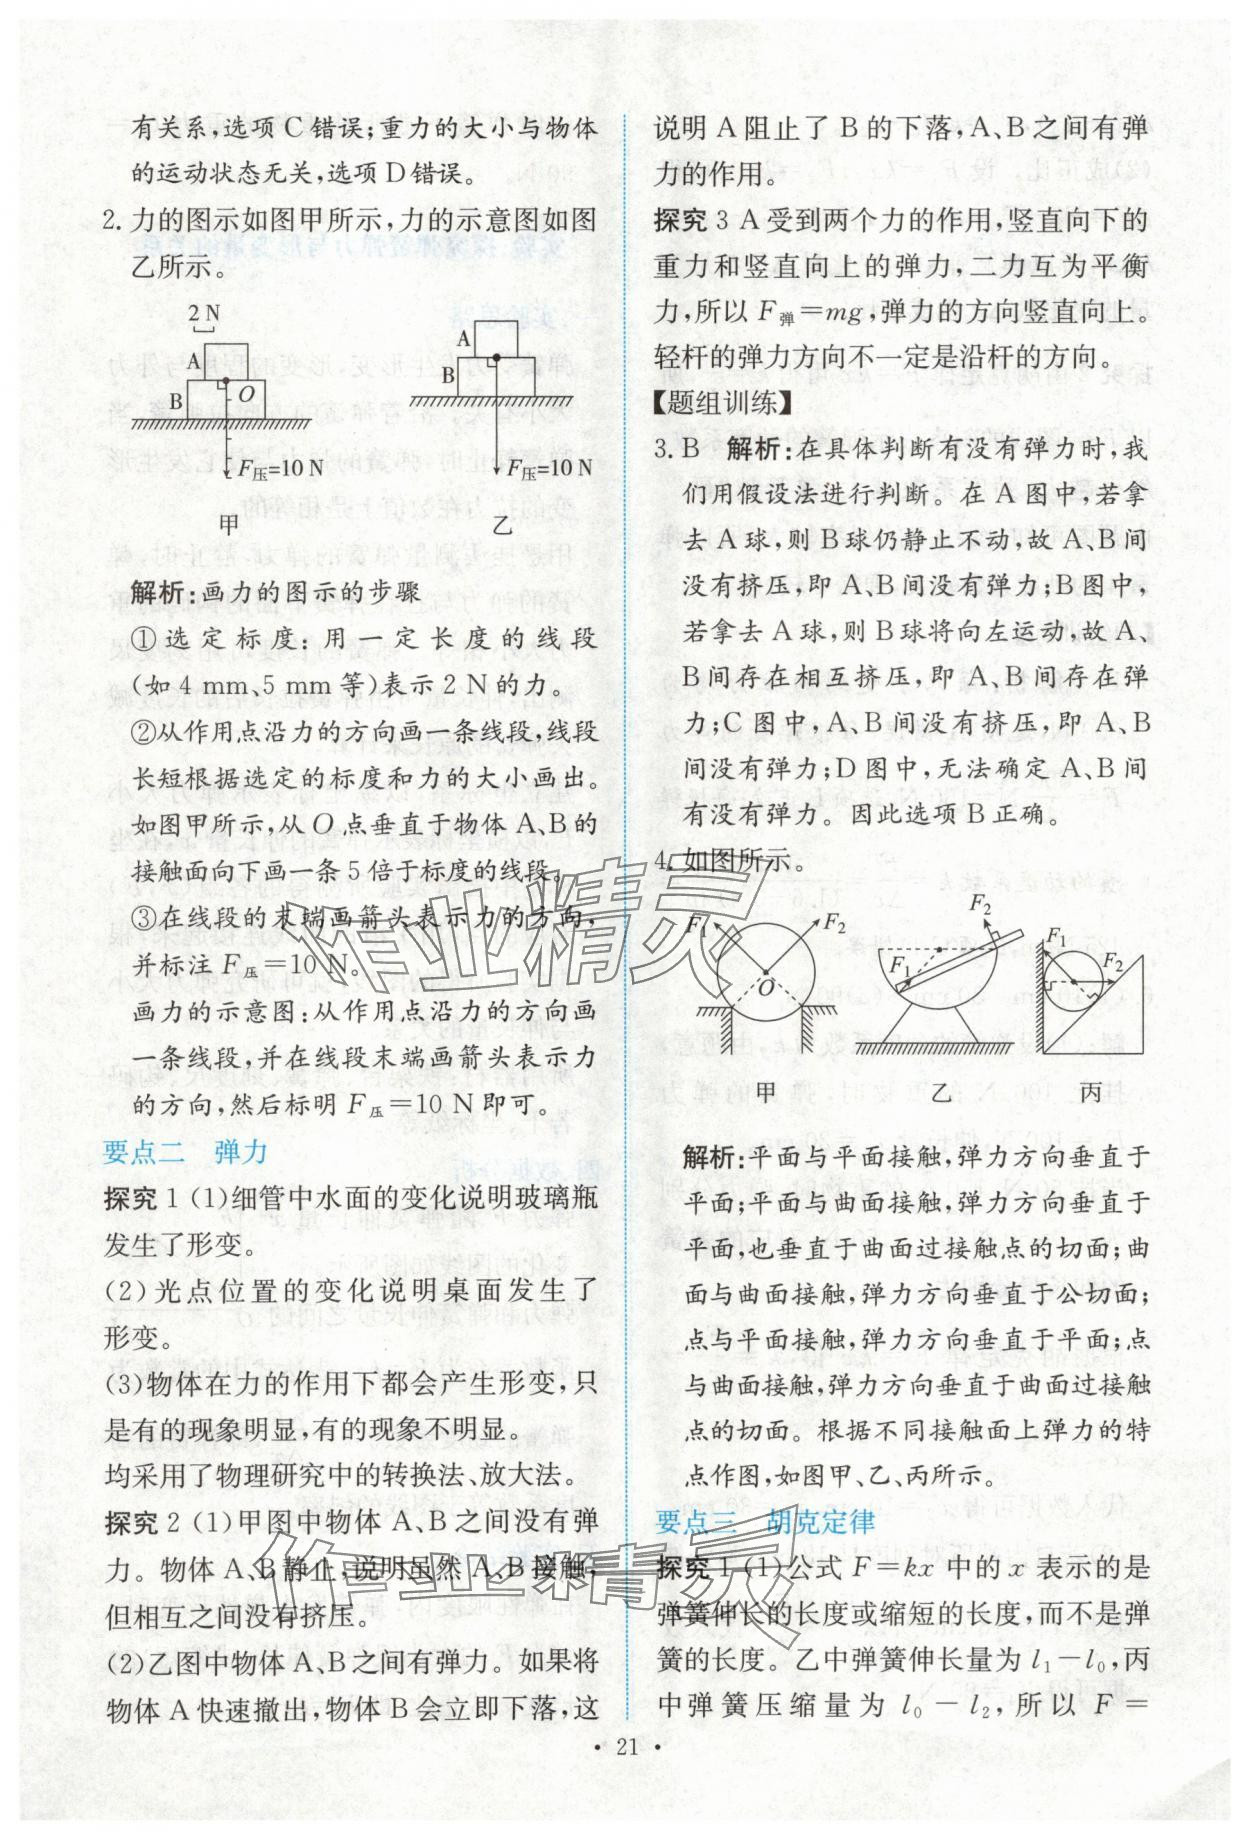 有关系,选项C错误;重力的大小与物体
的运动状态无关,选项D错误。
2. 力的图示如图甲所示,力的示意图如图
乙所示。
2 N
A
B
O
F压=10 N
甲
A
B
F压=10 N
乙
解析:画力的图示的步骤
①选定标度:用一定长度的线段
(如4 mm、5 mm等)表示2 N的力。
②从作用点沿力的方向画一条线段,线段
长短根据选定的标度和力的大小画出。
如图甲所示,从O点垂直于物体A、B的
接触面向下画一条5倍于标度的线段。
③在线段的末端画箭头表示力的方向,
并标注F压=10 N。
画力的示意图:从作用点沿力的方向画
一条线段,并在线段末端画箭头表示力
的方向,然后标明F压=10 N即可。
要点二 弹力
探究1 (1)细管中水面的变化说明玻璃瓶
发生了形变。
(2)光点位置的变化说明桌面发生了
形变。
(3)物体在力的作用下都会产生形变,只
是有的现象明显,有的现象不明显。
均采用了物理研究中的转换法、放大法。
探究2 (1)甲图中物体A、B之间没有弹
力。物体A、B静止,说明虽然A、B接触,
但相互之间没有挤压。
(2)乙图中物体A、B之间有弹力。如果将
物体A快速撤出,物体B会立即下落,这
说明A阻止了B的下落,A、B之间有弹
力的作用。
探究3 A受到两个力的作用,竖直向下的
重力和竖直向上的弹力,二力互为平衡
力,所以F弹=mg,弹力的方向竖直向上。
轻杆的弹力方向不一定是沿杆的方向。
【题组训练】
3. B 解析:在具体判断有没有弹力时,我
们用假设法进行判断。在A图中,若拿
去A球,则B球仍静止不动,故A、B间
没有挤压,即A、B间没有弹力;B图中,
若拿去A球,则B球将向左运动,故A、
B间存在相互挤压,即A、B间存在弹
力;C图中,A、B间没有挤压,即A、B
间没有弹力;D图中,无法确定A、B间
有没有弹力。因此选项B正确。
4. 如图所示。
F1
F2
O
甲
F2
F1
乙
F1
F2
丙
解析:平面与平面接触,弹力方向垂直于
平面;平面与曲面接触,弹力方向垂直于
平面,也垂直于曲面过接触点的切面;曲
面与曲面接触,弹力方向垂直于公切面;
点与平面接触,弹力方向垂直于平面;点
与曲面接触,弹力方向垂直于曲面过接触
点的切面。根据不同接触面上弹力的特
点作图,如图甲、乙、丙所示。
要点三 胡克定律
探究1 (1)公式F=kx中的x表示的是
弹簧伸长的长度或缩短的长度,而不是弹
簧的长度。乙中弹簧伸长量为l1-l0,丙
中弹簧压缩量为l0-l2,所以F=
• 21 •
作业精灵
作业精灵